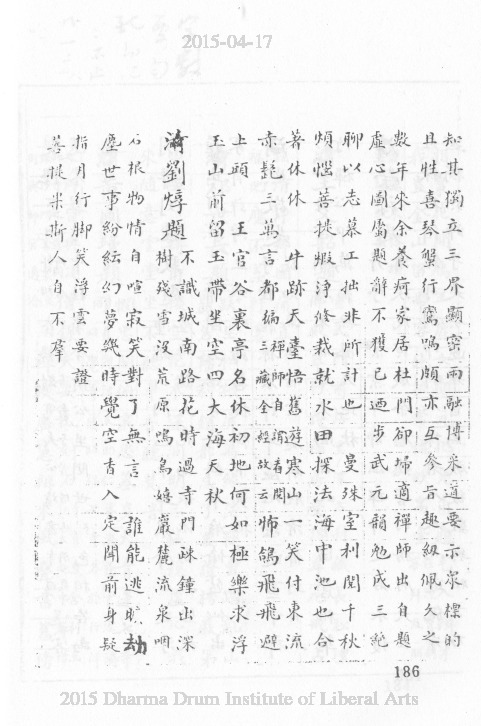 2015-04-17
知其獨立三界顯密兩融博采道要示眾標的
且性喜琴蟹行鸞鳴頗亦互參旨趣紉佩久之
數年來余養疴家居杜門卻埽適禪師出自題
虛心圖屬題辭不獲已迺步武元韻勉成三絕
聊以志慕工拙非所計也 曼殊室利閱千秋
煩惱菩提暇淨修裁就水田探法海中池也合
著休休 牛跡天臺悟舊遊寒山一笑付東流
赤髭三萬言都徧三藏全經故云禪師自謂看閱怖鴿飛飛避
上頭 王官谷裏亭名休初地何如極樂求浮
玉山前留玉帶坐空四大海天秋
濟劉焞題 不識城南路花時過寺門疎鐘出深
樹殘雪沒荒原鳴鳥嬉巖麓流泉咽
石根物情自喧寂笑對了無言 誰能逃曠劫
塵世事紛紜幻夢幾時覺空香入定聞前身疑
指月行脚笑浮雲要證
菩提果斯人自不羣
186
2015 Dharma Drum Institute of Liberal Arts